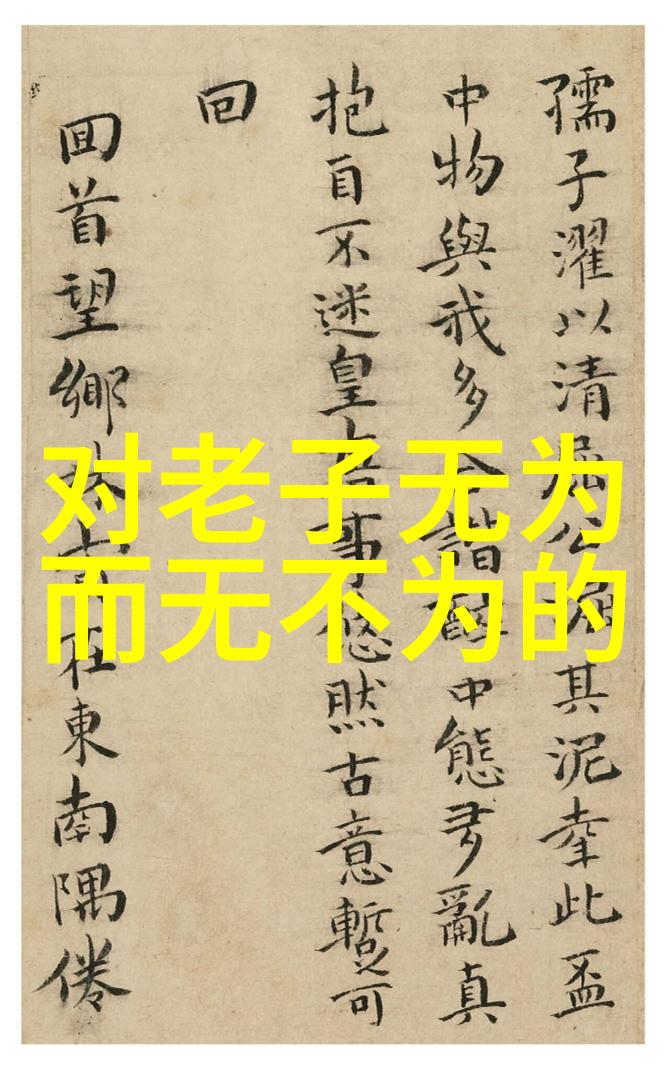 对老子无为
而无不为的
孺子濯以清屈公其泥幸此盃
中物與我多諧中態多亂真
抱自不迷皇事悠然古意暫可
回
囬首望鄉在東南隅倦